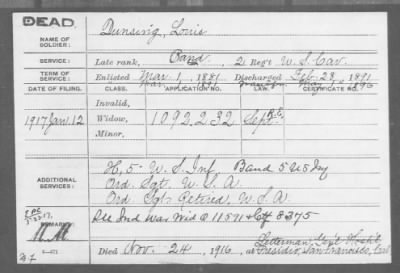 DEAD.
NAME OF SOLDIER: Dunsing, Louis
SERVICE: Late rank, Band, 2 Reg't U.S. Cav.
TERM OF SERVICE: Enlisted Mar. 1, 1881. Discharged Feb. 28, 1891
DATE OF FILING. CLASS. APPLICATION NO. LAW. CERTIFICATE NO.
Invalid,
1917 Jan. 12 Widow, 1092232 Sept.
Minor,
ADDITIONAL SERVICES: H, 5" U.S. Inf, Band 5 U S Inf
Ord Sgt. U.S.A.
Ord Sgt. Retired, U.S.A.
REMARKS: Ind War Wid O 11571 Ctf 8375
Died Nov. 24, 1916, at Letterman, Hospital
Presidio, San Francisco, Cal